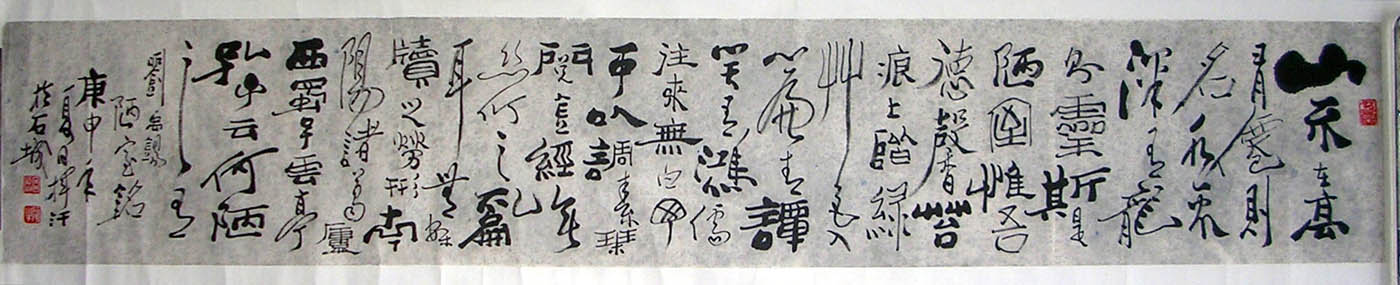 山不在高
有僊則
名水不在
深有龍
則靈斯是
陋室惟吾
德馨苔
痕上階綠
艸色入
簾青譚
笑有鴻儒
往來無白丁
可以調素琴
閱金經無
絲竹之亂
耳無案
牘之勞形南
陽諸葛廬
西蜀子雲亭
孔子云何陋
之有
劉禹錫
陋室銘
庚申年
夏日揮汗
於石城